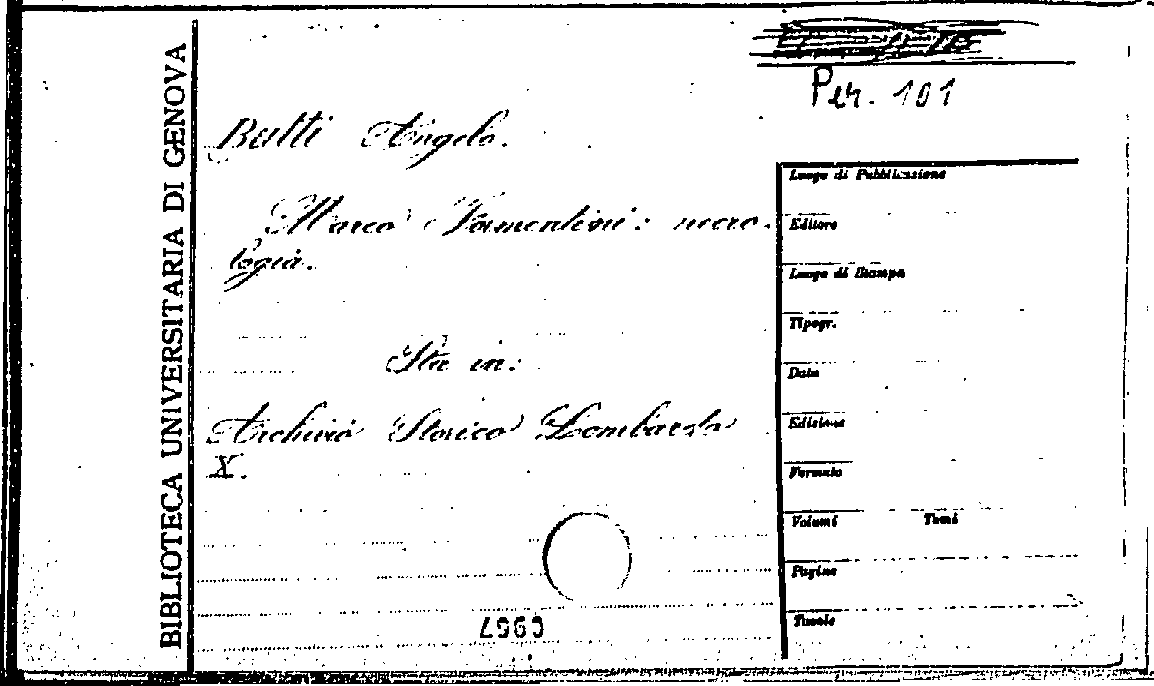 BIBLIOTECA UNIVERSITARIA DI GENOVA
Per. 101
Butti Angelo.
Marco Formentini: necro-
logia.
Sta in:
Archivio Storico Lombardo
X.
Luogo di Pubblicazione
Editore
Luogo di Stampa
Tipogr.
Data
Edizione
Formato
Volumi Tomi
Pagine
Tavole